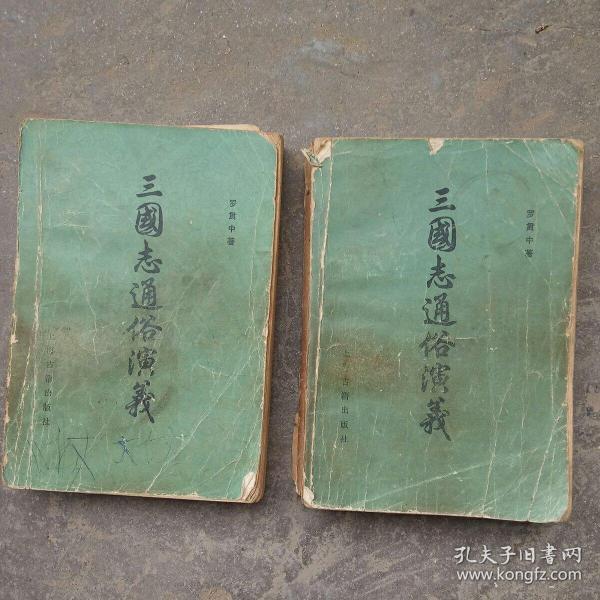 三國志通俗演義
罗貫中著
上海古籍出版社
三國志通俗演義
罗貫中著
上海古籍出版社
孔夫子旧書网
www.kongfz.com